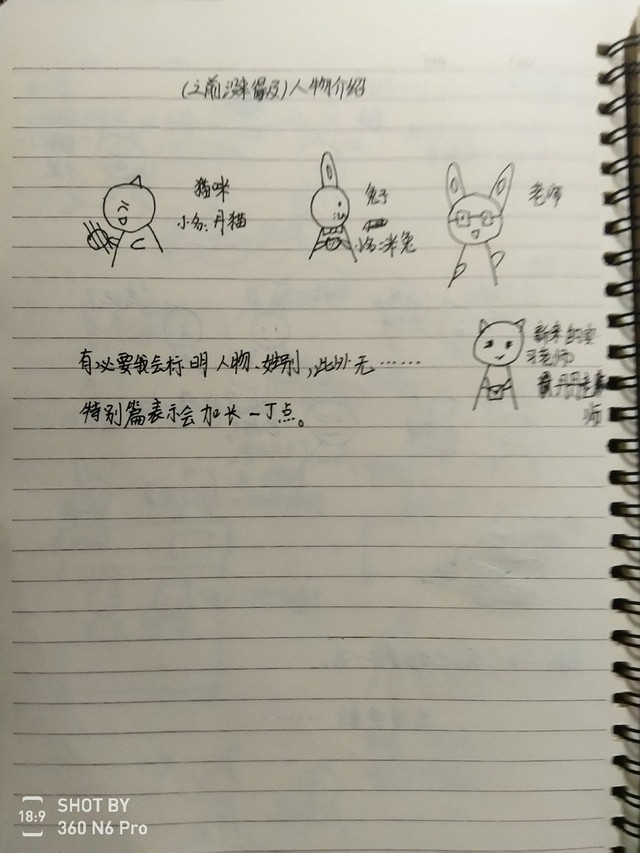 (之前没来得及)人物介绍
猫咪
小名:丹猫
兔子
小名:米兔
老师
新来的实
习老师
丹丹老
师
有必要我会标明人物、性别,此外无……
特别篇表示会加长一丁点。
18:9
SHOT BY
360 N6 Pro